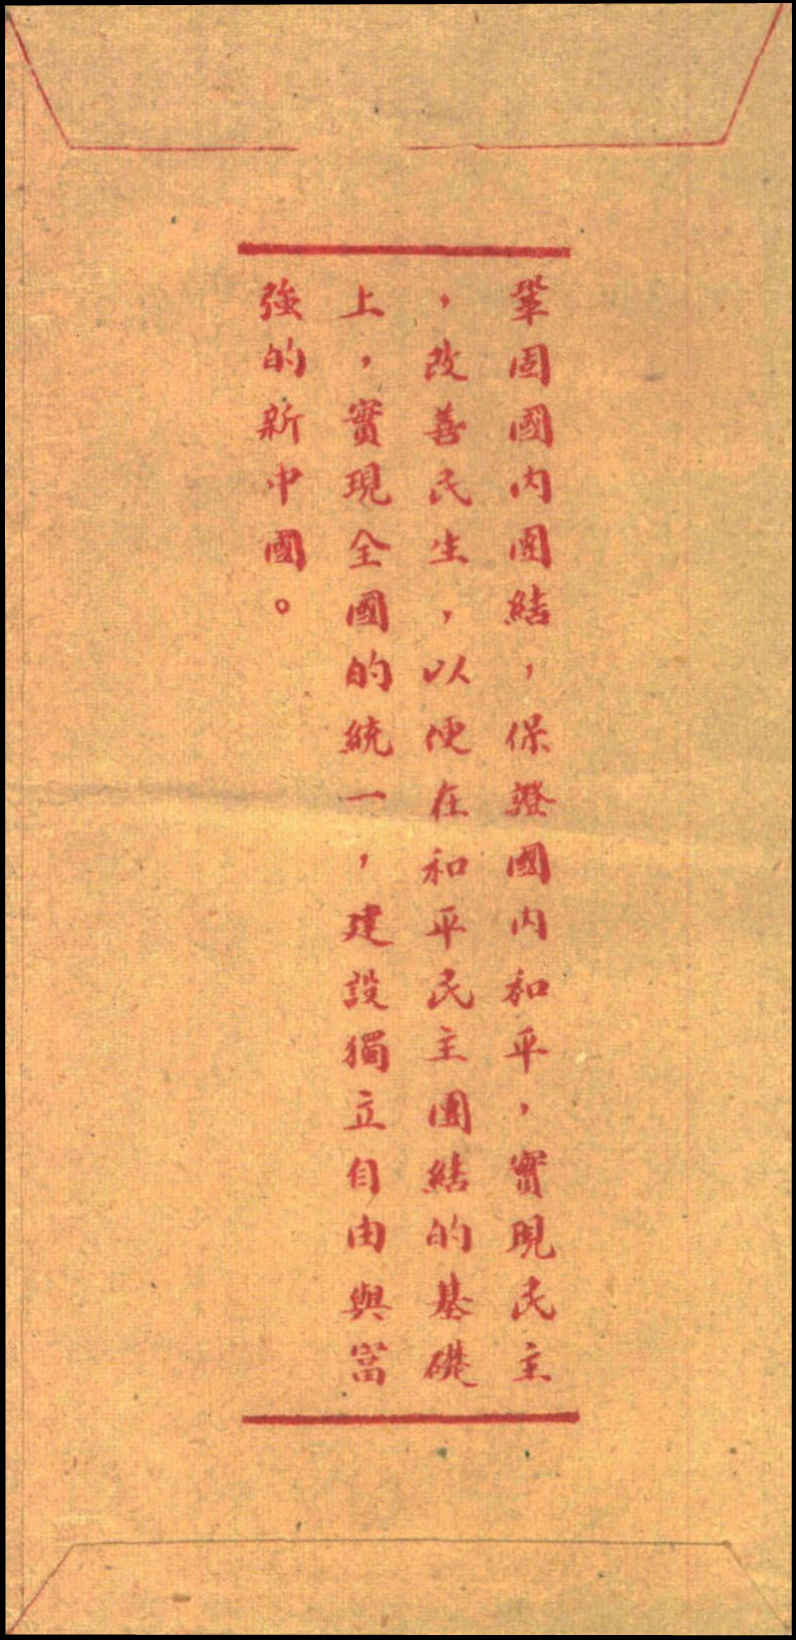 鞏固國內團結，保證國內和平，實現民主
，改善民生，以便在和平民主團結的基礎
上，實現全國的統一，建設獨立自由與富
強的新中國。